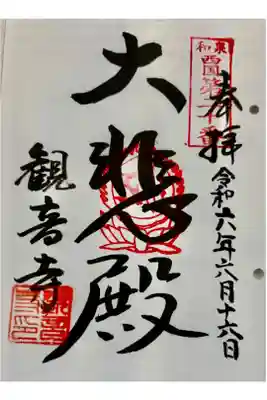 奉拝
令和六年六月十六日
和泉
西国第
番
大悲殿
観音寺